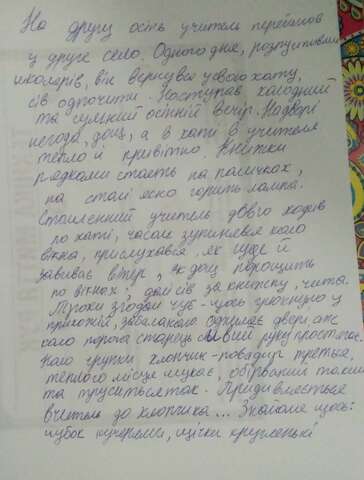 На другу осінь учитель перейшов
у друге село. Одного дня, розпустивши
школярів, він вернувся у свою хату,
сів одпочити. Наступав холодний
та сумний осінній вечір. Надворі
негода, дощ, а в хаті в учителя
тепло й привітно. Книжки
рядками стоять на поличках,
на столі ясно горить лампа.
Стомлений учитель довго ходив
по хаті, часом зупинявся коло
вікна, прислухався, як гуде й
завиває вітер, як дощ порощить
по вікнах; далі сів за книжку, чита.
Трохи згодом чує - щось грюкнуло у
прихожій, забалакало одчиняє двері аж
коло порога старець сивий руку простяга.
Коло грубки хлопчик-поводир претька,
теплого місця шукає, обірваний такий
та труситься так. Придивляється
вчитель до хлопчика... Знайоме щось:
чубок кучерями, щічки кругленькі